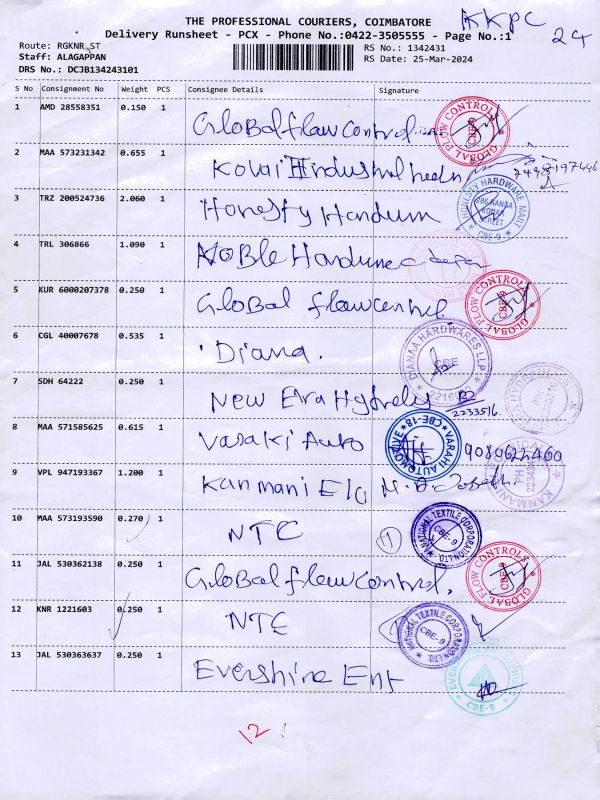 THE PROFESSIONAL COURIERS, COIMBATORE
KKPC
Delivery Runsheet - PCX - Phone No.:0422-3505555 - Page No.:1
24
Route: RGKNR_ST
RS No.: 1342431
Staff: ALAGAPPAN
RS Date: 25-Mar-2024
DRS No.: DCJB134243101
S No Consignment No Weight PCS Consignee Details Signature
1 AMD 28558351 0.150 1 Global flow control GLOBAL FLOW CONTROL CBE-9
2 MAA 573231342 0.655 1 Kovai Industrial
3 TRZ 200524736 2.060 1 Honesty HONESTY HARDWARE MART STREET CBE-9
4 TRL 306866 1.090 1 Noble
5 KUR 6000207378 0.250 1 Global flow control GLOBAL FLOW CONTROL CBE-9
6 CGL 40007678 0.535 1 Diana. DIANAA HARDWARES LLP CBE
7 SDH 64222 0.250 1 New Era 2233516
8 MAA 571585625 0.615 1 Vasaki Auto VARAHI AUTOMOTIVE CBE-18 9080622460
9 VPL 947193367 1.200 1 Kanmani KANMANI
10 MAA 573193590 0.270 1 NTC 1 NATIONAL TEXTILE CORPORATION LTD. CBE-9
11 JAL 530362138 0.250 1 Global flow control. GLOBAL FLOW CONTROL CBE-9
12 KNR 1221603 0.250 1 NTC NATIONAL TEXTILE CORPORATION LTD. CBE-9
13 JAL 530363637 0.250 1 Evershine Ent CBE-9
12